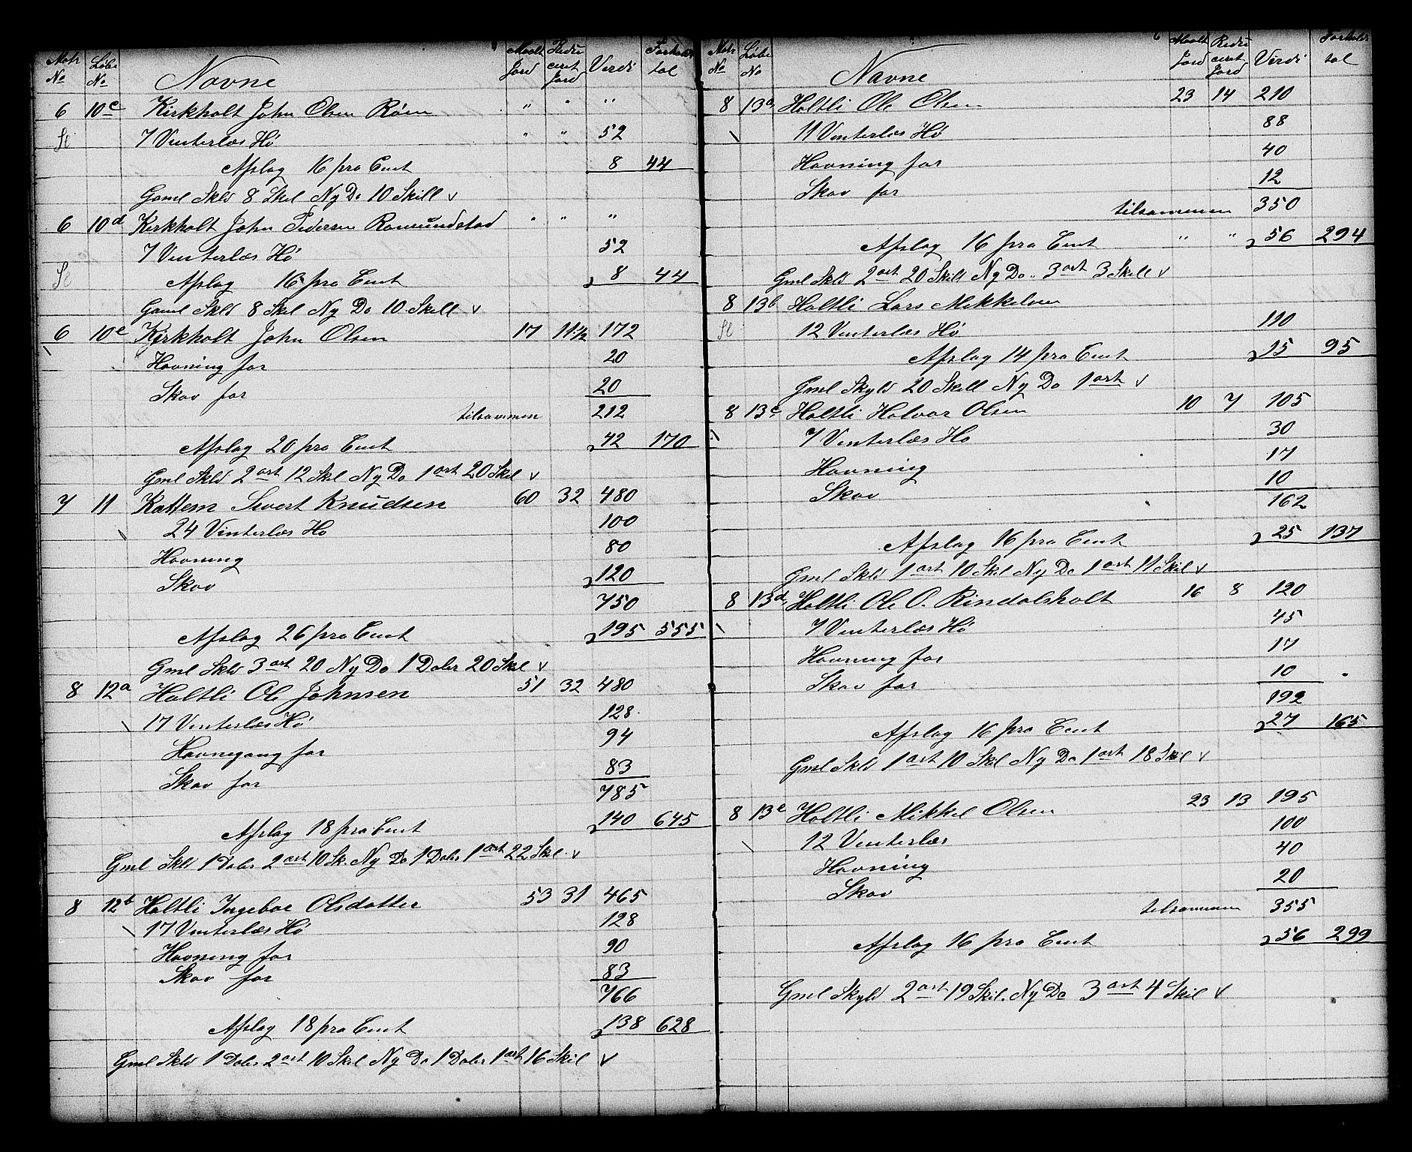 Matr No Løbe No Navne Maalt Jord Redu ceret Jord Verdi Forholds tal
6 10c Kirkholt John Olsen Røen " " "
7 Vinterlæs Hø " " 52
Afslag 16 pro Cent 8 44
Gaml Skld 8 Skil Ny Do 10 Skill v
6 10d Kirkholt John Pedersen Romundstad " " "
7 Vinterlæs Hø 52
Afslag 16 pro Cent 8 44
Gaml Skld 8 Skil Ny Do 10 Skill v
6 10e Kirkholt John Olsen 17 11½ 172
Havning for 20
Skov for 20
tilsammen 212
Afslag 20 pro Cent 42 170
Gml Skld 2 ort 12 Skl Ny Do 1 ort 20 Skil v
7 11 Kattem Sivert Knudsen 60 32 480
24 Vinterlæs Hø 100
Havning 80
Skov 120
750
Afslag 26 pro Cent 195 555
Gml Skld 3 ort 20 Ny Do 1 Daler 20 Skl v
8 12a Holtli Ole Johnsen 51 32 480
17 Vinterlæs Hø 128
Havnegang for 94
Skov for 83
785
Afslag 18 pro Cent 140 645
Gml Skld 1 Daler 2 ort 10 Sk. Ny Do 1 Daler 1 ort 22 Skl v
8 12b Holtli Ingebor Olsdatter 53 31 465
17 Vinterlæs Hø 128
Havning for 90
Skov for 83
766
Afslag 18 pro Cent 138 628
Gml Skld 1 Daler 2 ort 10 Skl Ny Do 1 Daler 1 ort 16 Skil v
Matr No Løbe No Navne Maalt Jord Redu ceret Jord Verdi Forholds tal
8 13a Holtli Ole Olsen 23 14 210
11 Vinterlæs Hø 88
Havning for 40
Skov for 12
tilsammen 350
Afslag 16 pro Cent " " 56 294
Gml Skld 2 ort 20 Skill Ny Do. 3 ort 3 Skill v
8 13b Holtli Lars Mikkelsen
12 Vinterlæs Hø 110
Afslag 14 pro Cent 15 95
Gml Skyld 20 Skill Ny Do 1 ort v
8 13c Holtli Halvor Olsen 10 7 105
7 Vinterlæs Hø 30
Havning 17
Skov 10
162
Afslag 16 pro Cent 25 137
Gml Skld 1 ort 10 Skl Ny Do 1 ort 11 Skil v
8 13d Holtli Ole O. Rindalsholt 16 8 120
7 Vinterlæs Hø 45
Havning for 17
Skov for 10
192
Afslag 16 pro Cent 27 165
Gml Skld 1 ort 10 Skl Ny Do 1 ort 18 Skil v
8 13e Holtli Mikkel Olsen 23 13 195
12 Vinterlæs 100
Havning 40
Skov 20
tilsammen 355
Afslag 16 pro Cent 56 299
Gml Skyld 2 ort 19 Skil. Ny Do 3 ort 4 Skil v